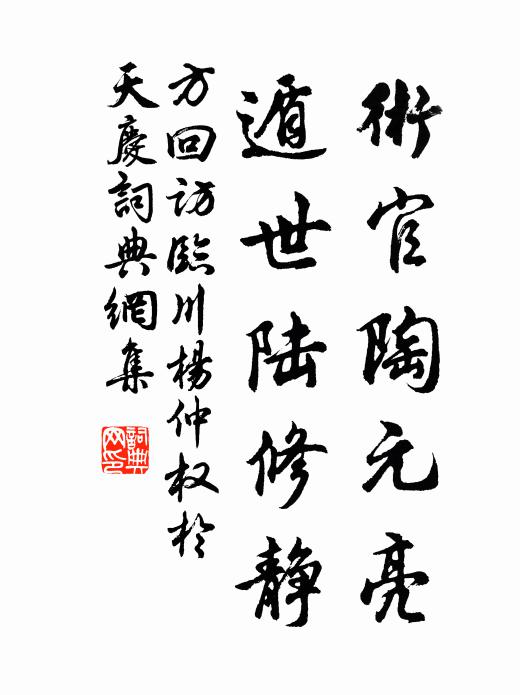 術官陶元亮
遁世陆修静
方回访臨川楊仲权於
天慶詞典網集
詞典网印